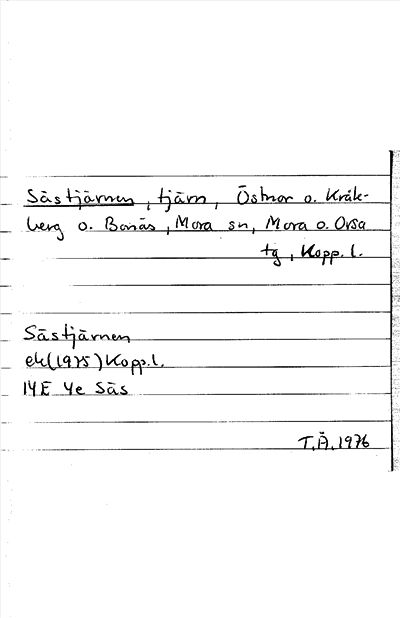 Såstjärnen, tjärn, Östnor o. Kråk-
berg o. Bonäs, Mora sn, Mora o. Orsa
tg, Kopp. l.
Såstjärnen
ek(1975) Kopp.l.
14E 4e Sås
T.Å. 1976